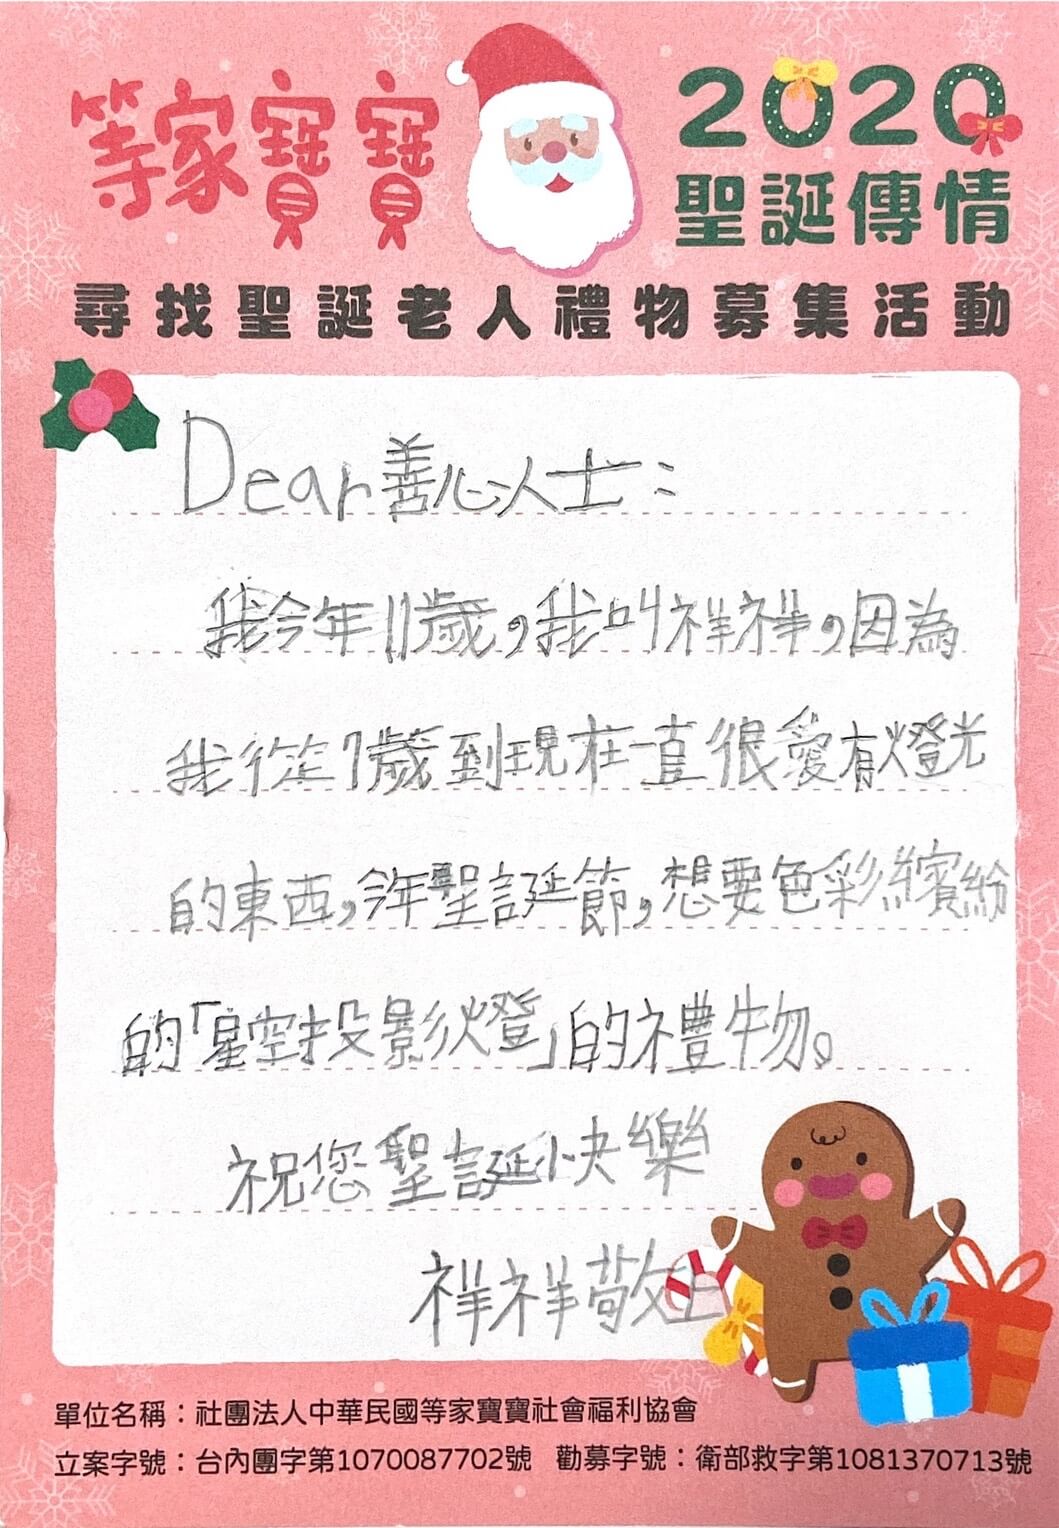 等家寶寶
2020
聖誕傳情
尋找聖誕老人禮物募集活動
Dear善心人士：
我今年11歲，我叫祥祥，因為
我從7歲到現在一直很愛有燈光
的東西，今年聖誕節，想要色彩繽紛
的「星空投影燈」的禮物。
祝您聖誕快樂
祥祥敬上
單位名稱：社團法人中華民國等家寶寶社會福利協會
立案字號：台內團字第1070087702號 勸募字號：衛部救字第1081370713號